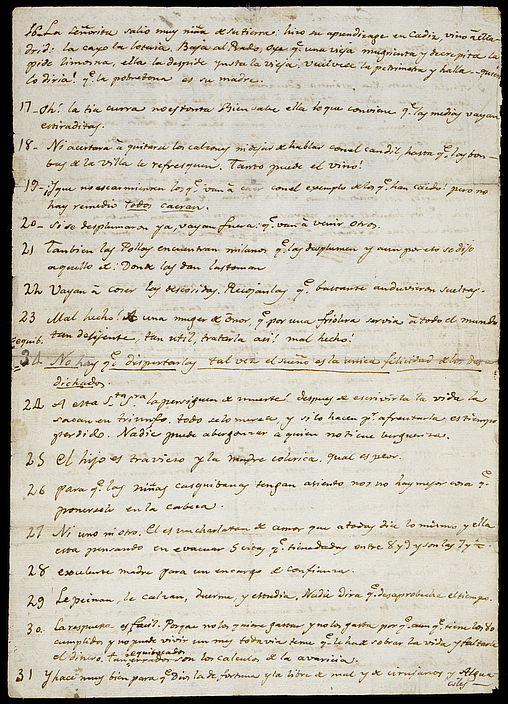 16 La Señorita salio muy niña de su tierra: hizo su aprendizage en Cadiz, vino â Ma
drid: la cayo la loteria. Baja al Prado, oye qe. una vieja mugrienta y decrepita la
pide limosna, ella la despide ynsta la vieja, vuelvese la petrimetra y halla quien
lo diria! qe. la pobretona es su madre.
17- Oh! la tia curra no es tonta Bien sabe ella lo que conviene qe. las medias vayan
estiraditas.
18- Ni acertará â quitarse los calzones ni dejar de hablar con el candil, hasta qe. las bom
bas de la villa le refresquen. Tanto puede el vino!
19- ¡Y que no escarmienten los qe. van â caer con el exemplo de los qe. han caido! pero no
hay remedio todos caeran.
20- Si se desplumaron ya, vayan fuera: qe. van â venir otros.
21 Tambien las Pollas encuentran milanos qe. las desplumen y aun por eso se dijo
aquello de: Donde las dan las toman
22 Vayan â coser las descosidas. Recojanlas qe. bastante anduvieron sueltas.
23 Mal hecho! A una muger de onor, qe. por una friolera servia â todo el mundo
tan delijente, tan util, tratarla asi! mal hecho!
34 No hay qe. dispertarlas tal vez el sueño es la unica felicidad de los des
dichados
24 A esta Sta. Sra. la persiguen de muerte! despues de escrivirla la vida la
sacan en triunfo. todo se lo merece, y si lo hacen pr. afrentarla es tiempo
perdido. Nadie puede abergonzar a quien no tiene berguenza.
25 El hijo es travieso y la madre colerica. qual es peor.
26 para qe. las niñas casquibanas tengan asiento no hay mejor cosa qe.
ponerselo en la cabeza.
27 Ni uno ni otro. El es un charlatan de amor que a todas dice lo mismo, y ella
esta pensando en evacuar 5 citas qe. tiene dadas entre 8 y 9 y son las 7 y ½.
28 excelente madre para un encargo de confianza.
29 Le peinan, le calzan, duerme, y estudia. Nadie dira qe. desaprobecha el tiempo.
30. La respuesta es facil. Porque no los quiere gastar y no los gasta por qe. aun qe. tiene los 80
cumplidos y no puede vivir un mes todavia teme qe. le ha de sobrar la vida y faltarle
el dinero. Tan equibocados son los calculos de la avaricia.
31 Y hace muy bien para qe. Dios la de fortuna, y la libre de mal y de cirujanos y Algua
ciles